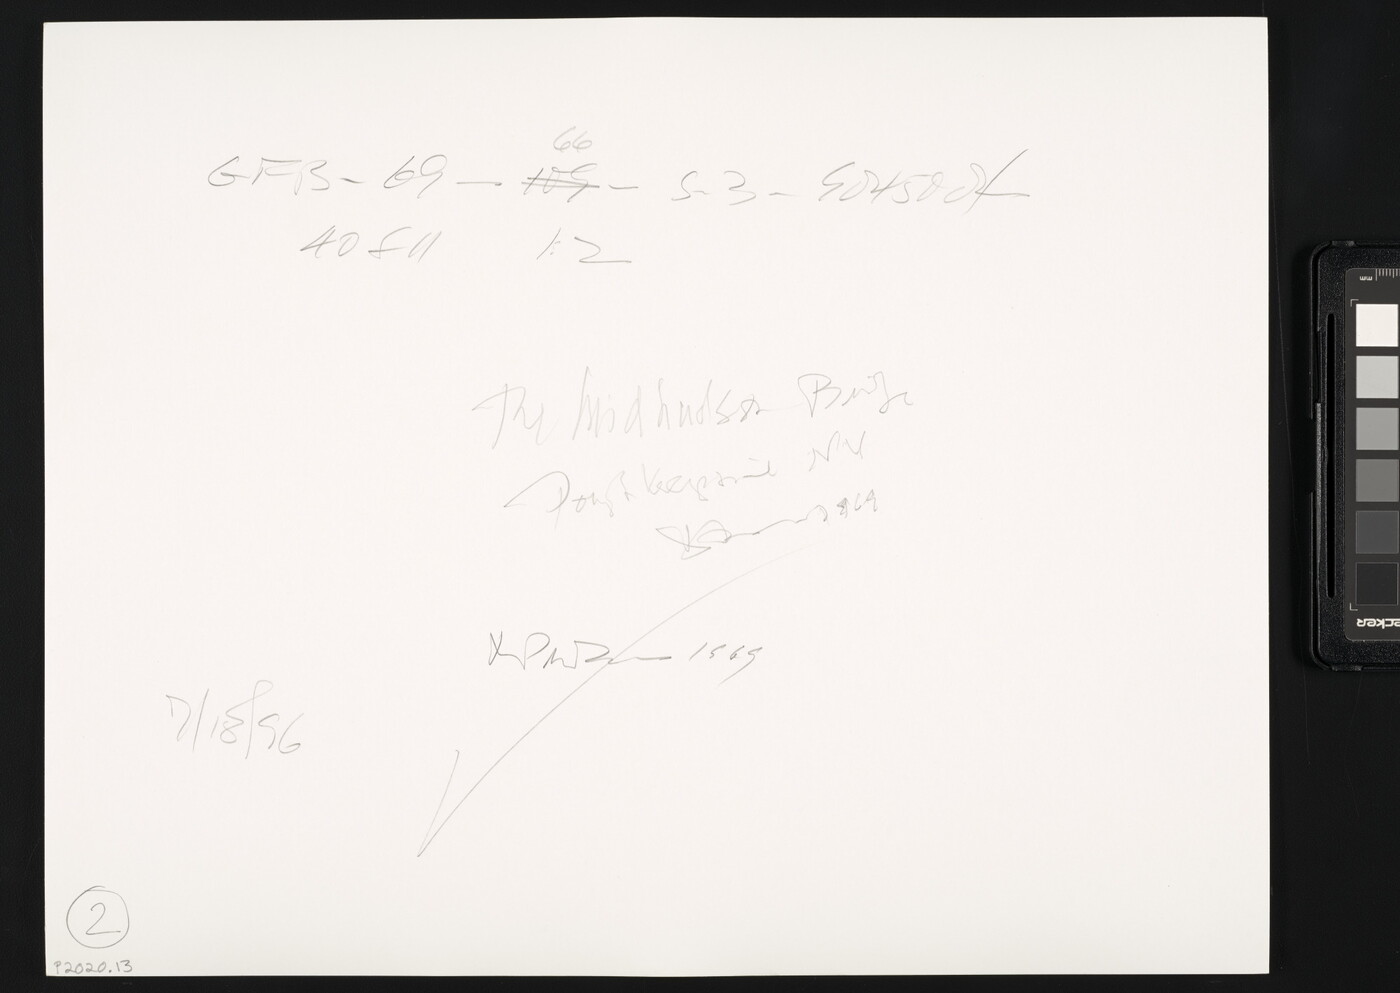 66
GFB - 69 - 109 - S-3 -
40 f 11 1:2
The Midhudson Bridge
Poughkeepsie NY
1969
1969
7/18/96
2
P2020.13
mm